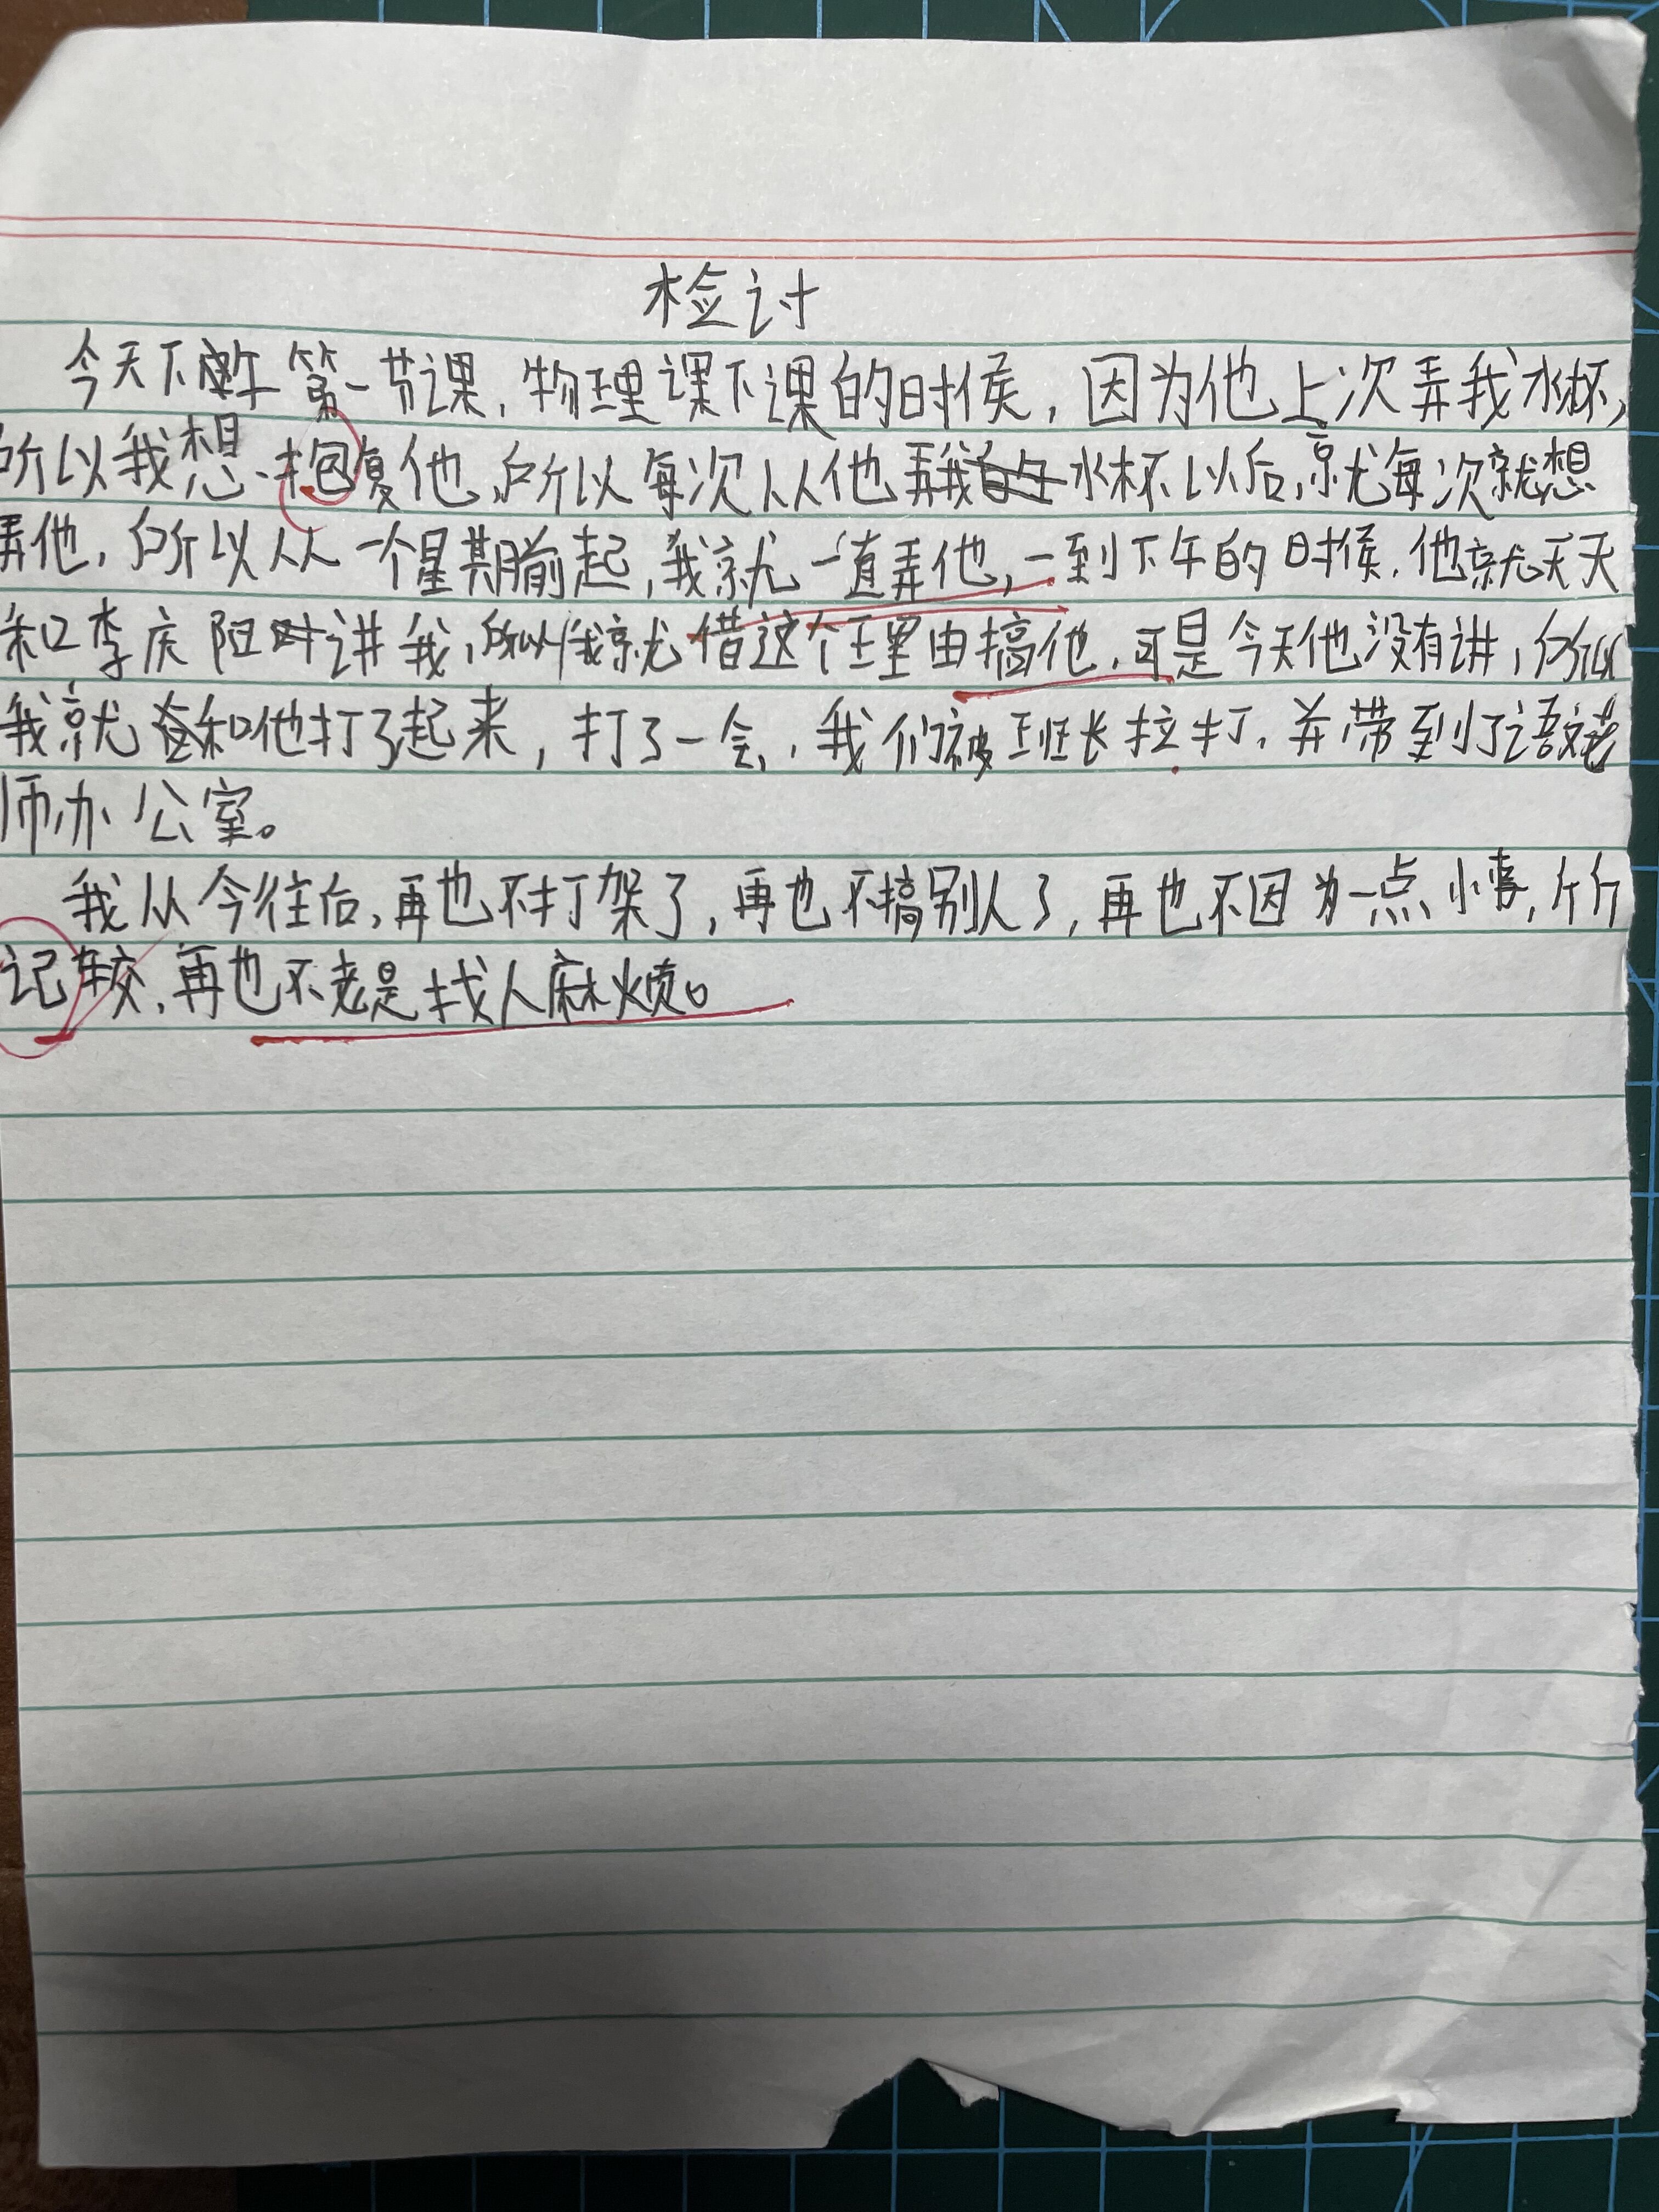 检讨
今天下午第一节课，物理课下课的时候，因为他上次弄我水杯，
所以我想抱复他，所以每次从他弄我水杯以后，就每次就想
弄他，所以从一个星期前起，我就一直弄他，一到下午的时候，他就天天
和李庆阳讲我，所以我就借这个理由搞他，可是今天他没有讲，所以
我就和他打了起来，打了一会，我们被班长拉打，并带到了语文老
师办公室。
我从今往后，再也不打架了，再也不搞别人了，再也不因为一点小事，斤斤
记较，再也不老是找人麻烦。